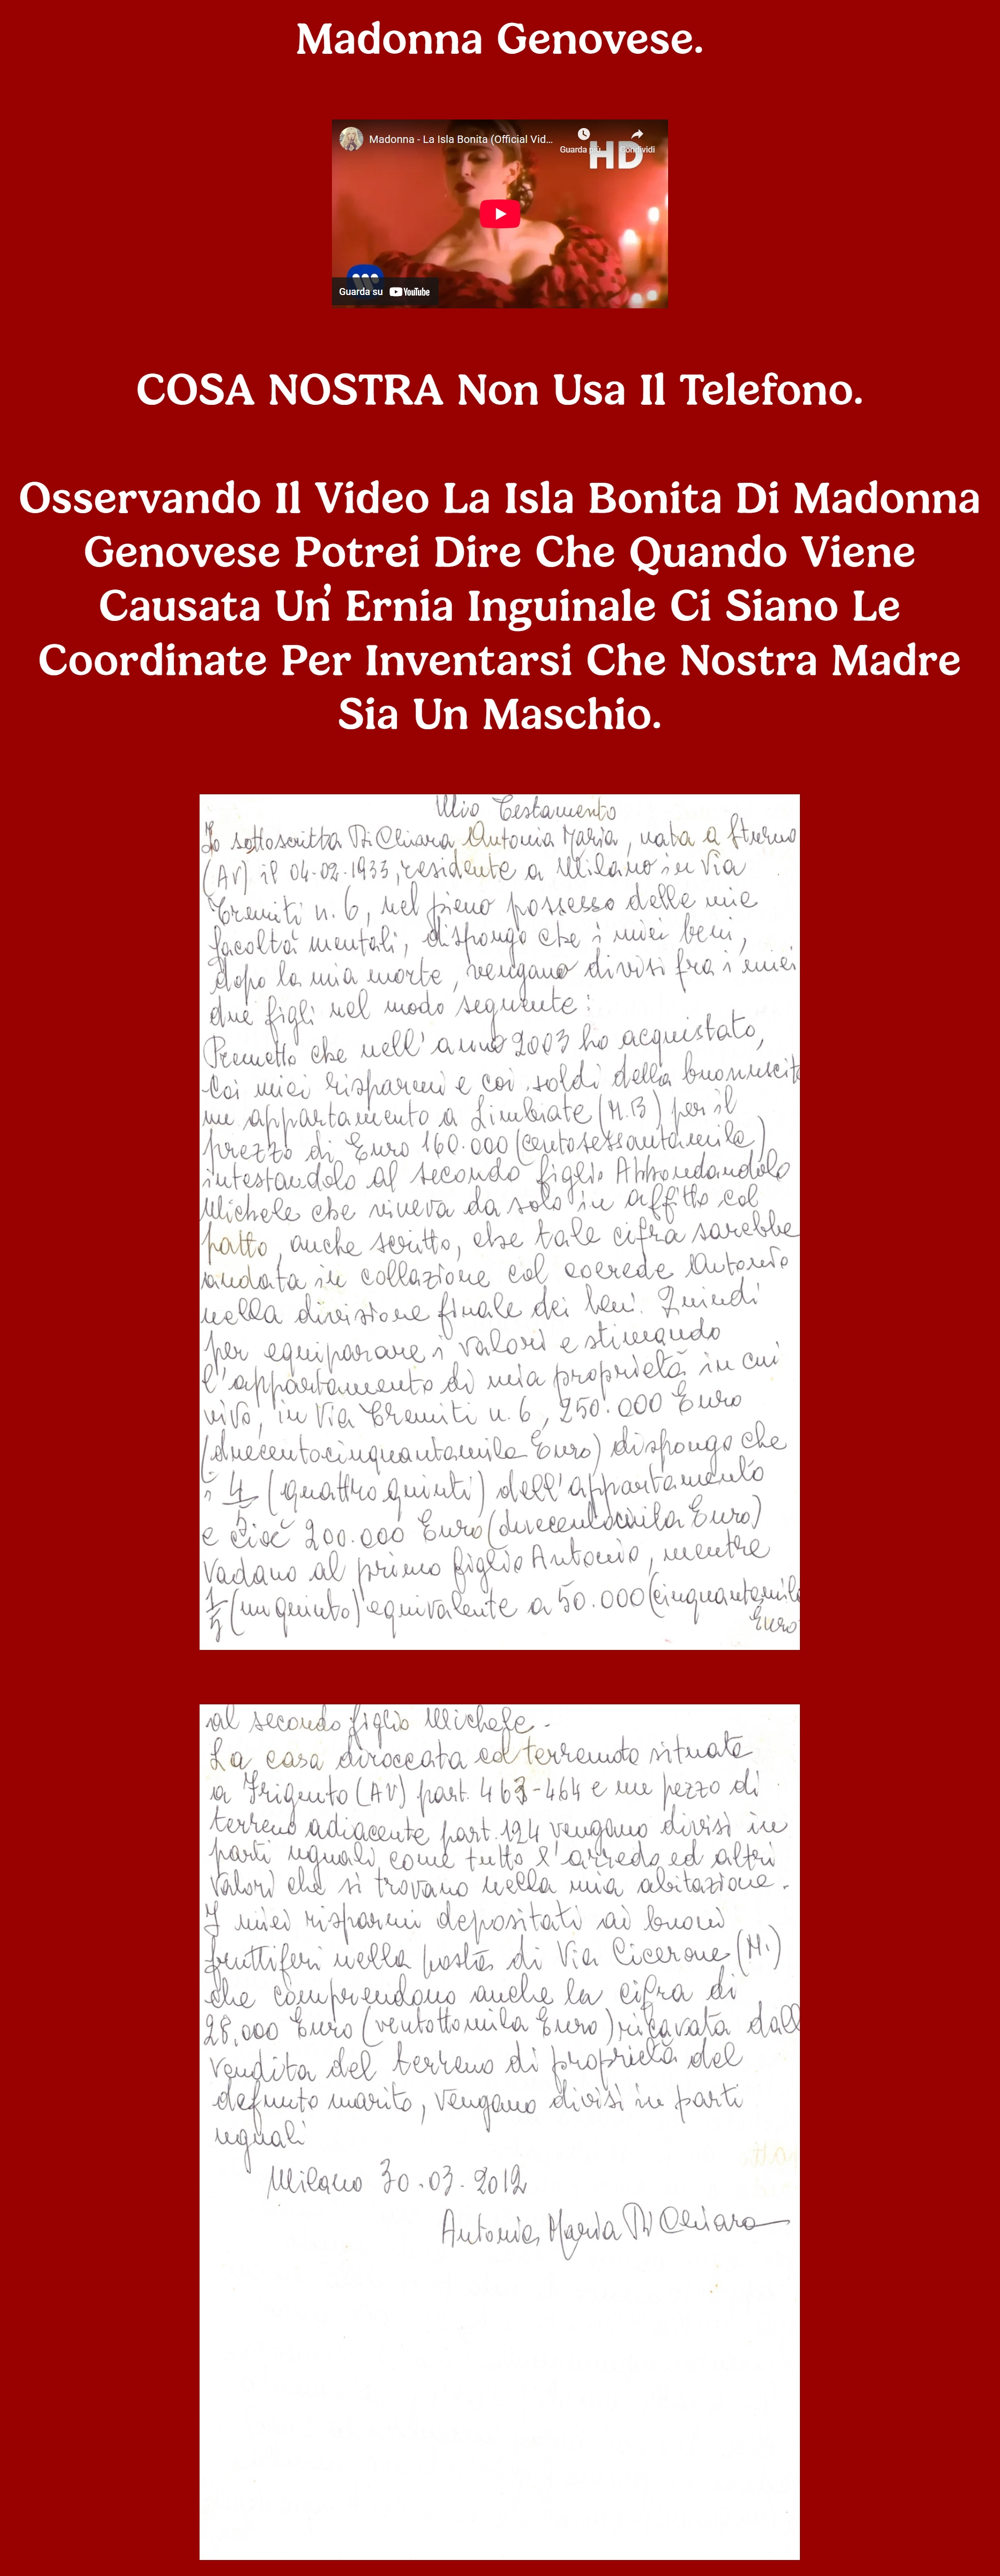 Madonna Genovese.
Madonna - La Isla Bonita (Official Vid...
Guarda più
Condividi
HD
Guarda su YouTube
COSA NOSTRA Non Usa Il Telefono.
Osservando Il Video La Isla Bonita Di Madonna
Genovese Potrei Dire Che Quando Viene
Causata Un' Ernia Inguinale Ci Siano Le
Coordinate Per Inventarsi Che Nostra Madre
Sia Un Maschio.
Mio Testamento
Io sottoscritta Di Chiara Antonia Maria, nata a Sturno
(AV) il 04-02-1933, residente a Milano in Via
Tremiti n. 6, nel pieno possesso delle mie
facoltà mentali, dispongo che i miei beni,
dopo la mia morte, vengano divisi fra i miei
due figli nel modo seguente:
Premetto che nell'anno 2003 ho acquistato,
coi miei risparmi e coi soldi della buonuscita
un appartamento a Limbiate (M.B) per il
prezzo di Euro 160.000 (centosessantamila)
intestandolo al secondo figlio Abbondandolo
Michele che viveva da solo in affitto col
patto, anche scritto, che tale cifra sarebbe
andata in collazione col coerede Antonio
nella divisione finale dei beni. Quindi
per equiparare i valori e stimando
l'appartamento di mia proprietà in cui
vivo, in Via Tremiti n. 6, 250.000 Euro
(duecentocinquantamila Euro) dispongo che
i 4/5 (quattro quinti) dell'appartamento
e cioè 200.000 Euro (duecentomila Euro)
vadano al primo figlio Antonio, mentre
1/5 (un quinto) equivalente a 50.000 (cinquantamila
Euro
al secondo figlio Michele.
La casa diroccata ed terremoto situate
a Frigento (AV) part. 463-464 e un pezzo di
terreno adiacente part. 124 vengano divisi in
parti uguali come tutto l'arredo ed altri
valori che si trovano nella mia abitazione.
I miei risparmi depositati ai buoni
fruttiferi nella posta di Via Cicerone (Mi)
che comprendono anche la cifra di
28.000 Euro (ventottomila Euro) ricavata dall
vendita del terreno di proprietà del
defunto marito, vengano divisi in parti
uguali
Milano 30.03.2012
Antonia Maria Di Chiara